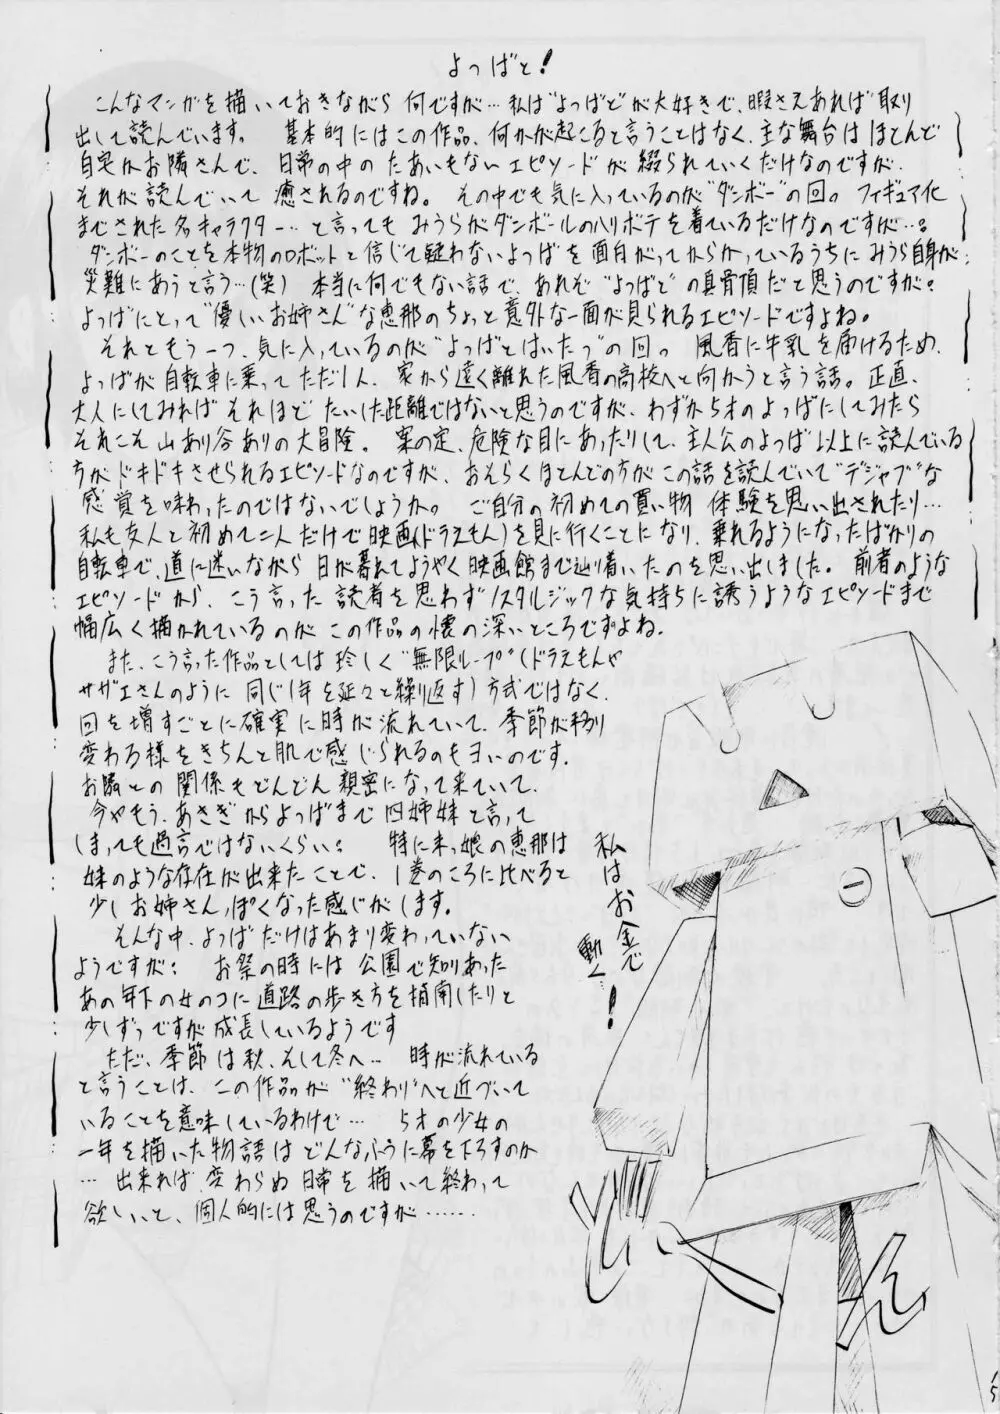 よつばと!
こんなマンガを描いておきながら何ですが…私は"よつばと"が大好きで、暇さえあれば取り
出して読んでいます。 基本的にはこの作品、何かが起こると言うことはなく、主な舞台はほとんど
自宅かお隣さんで、日常の中のたあいもないエピソードが綴られていくだけなのですが、
それが読んでいて癒されるのですね。その中でも気に入っているのが"ダンボー"の回。フィギュア化
までされた名キャラクター…と言ってもみうらがダンボールのハリボテを着ているだけなのですが…。
ダンボーのことを本物のロボットと信じて疑わないよつばを面白がってからかっているうちにみうら自身が
災難にあうと言う…(笑) 本当に何でもない話で、あれぞ"よつばと"の真骨頂だと思うのですが。
よつばにとって"優しいお姉さん"な恵那のちょっと意外な一面が見られるエピソードですよね。
それともう一つ、気に入っているのが"よつばとはいたつ"の回。 風香に牛乳を届けるため、
よつばが自転車に乗ってただ1人、家から遠く離れた風香の高校へと向かうと言う話。正直、
大人にしてみればそれほどたいした距離ではないと思うのですが、わずか5才のよつばにしてみたら
それこそ山あり谷ありの大冒険。 案の定、危険な目にあったりして、主人公のよつば以上に読んでいる
方がドキドキさせられるエピソードなのですが、おそらくほとんどの方がこの話を読んでいて"デジャブ"な
感覚を味わったのではないでしょうか。 ご自分の初めての買い物体験を思い出されたり…
私も友人と初めて二人だけで映画(ドラえもん)を見に行くことになり、乗れるようになったばかりの
自転車で、道に迷いながら日が暮れてようやく映画館まで辿り着いたのを思い出しました。前者のような
エピソードから、こう言った読者を思わずノスタルジックな気持ちに誘うようなエピソードまで
幅広く描かれているのがこの作品の懐の深いところですよね。
また、こう言った作品としては珍しく"無限ループ"(ドラえもんや
サザエさんのように同じ1年を延々と繰り返す)方式ではなく、
回を増すごとに確実に時が流れていて、季節が移り
変わる様をきちんと肌で感じられるのもヨいのです。
お隣との関係もどんどん親密になって来ていて、
今やもう、あさぎからよつばまで四姉妹と言って
しまっても過言ではないくらい。 特に末っ娘の恵那は
妹のような存在が出来たことで、1巻のころに比べると
少しお姉さんっぽくなった感じがします。
そんな中、よつばだけはあまり変わっていない
ようですが。 お祭の時には公園で知りあった
あの年下の女のコに道路の歩き方を指南したりと
少しずつですが成長しているようです
ただ、季節は秋、そして冬へ… 時が流れている
と言うことは、この作品が"終わり"へと近づいて
いることを意味しているわけで… 5才の少女の
一年を描いた物語はどんなふうに幕を下ろすのか
…出来れば変わらぬ日常を描いて終わって
欲しいと、個人的には思うのですが……
私はお金で
動く…!
15